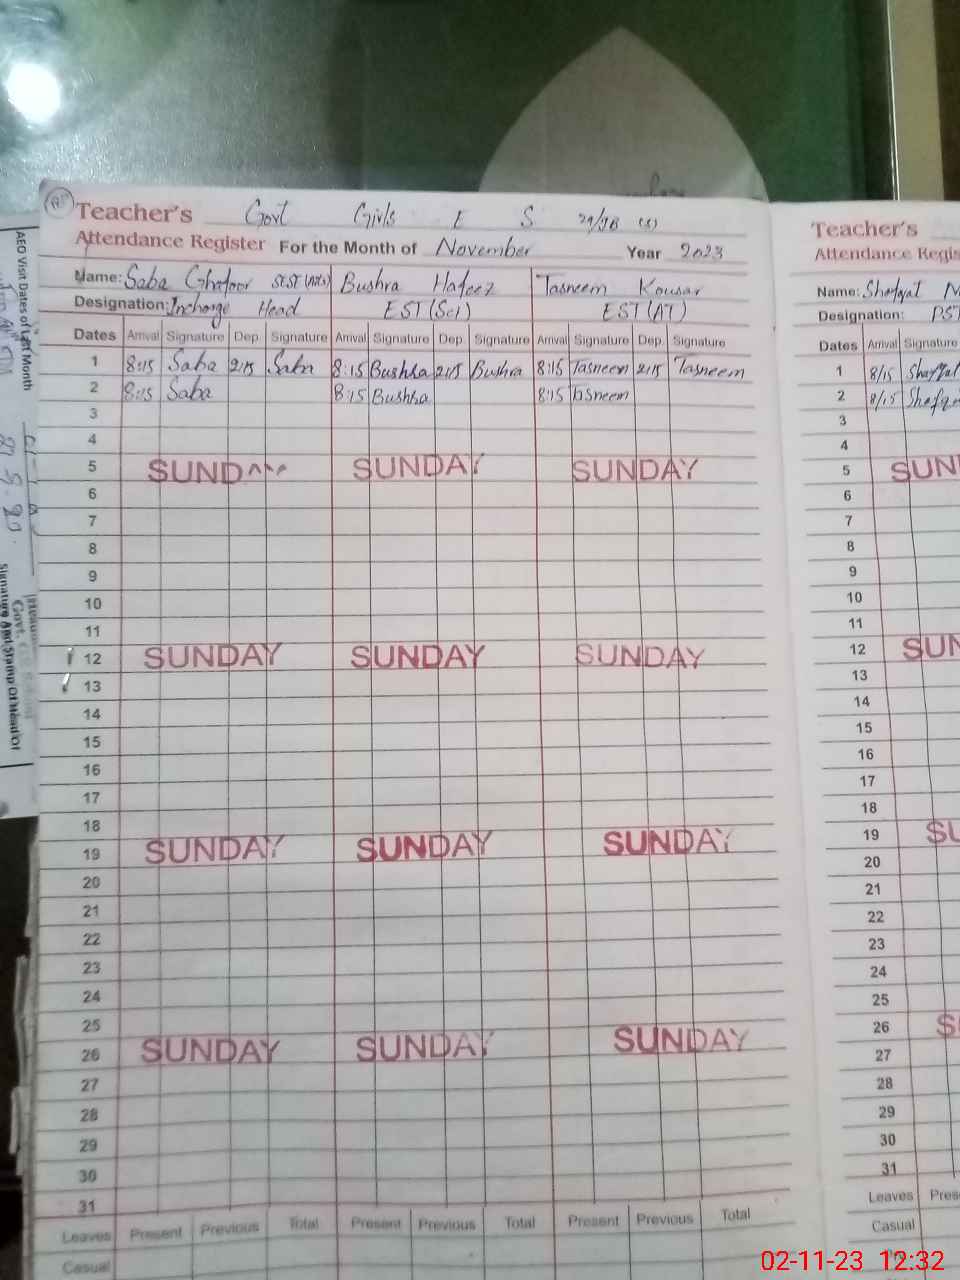 Teacher's Govt Girls E S
Attendance Register For the Month of November Year 2023
Name: Saba Ghafoor Bushra Hafeez Tasneem Kousar
Designation: Incharge Head EST (Sci) EST (AT)
Dates Arrival Signature Dep. Signature Arrival Signature Dep. Signature Arrival Signature Dep. Signature
1 8:15 Saba 2:15 Saba 8:15 Bushra 2:15 Bushra 8:15 Tasneem 2:15 Tasneem
2 8:15 Saba 8:15 Bushra 8:15 Tasneem
3
4
5 SUNDAY SUNDAY SUNDAY
6
7
8
9
10
11
12 SUNDAY SUNDAY SUNDAY
13
14
15
16
17
18
19 SUNDAY SUNDAY SUNDAY
20
21
22
23
24
25
26 SUNDAY SUNDAY SUNDAY
27
28
29
30
31
Leaves Present Previous Total Present Previous Total Present Previous Total
Casual
Teacher's
Attendance Regis
Name: Shafqat
Designation: PST
Dates Arrival Signature
1 8/15 Shafqat
2 8/15 Shafq
3
4
5 SUN
6
7
8
9
10
11
12 SUN
13
14
15
16
17
18
19 SU
20
21
22
23
24
25
26 S
27
28
29
30
31
Leaves Pres
Casual
AEO Visit Dates of Last Month
Signature And Stamp Of Head of
Govt.
02-11-23 12:32